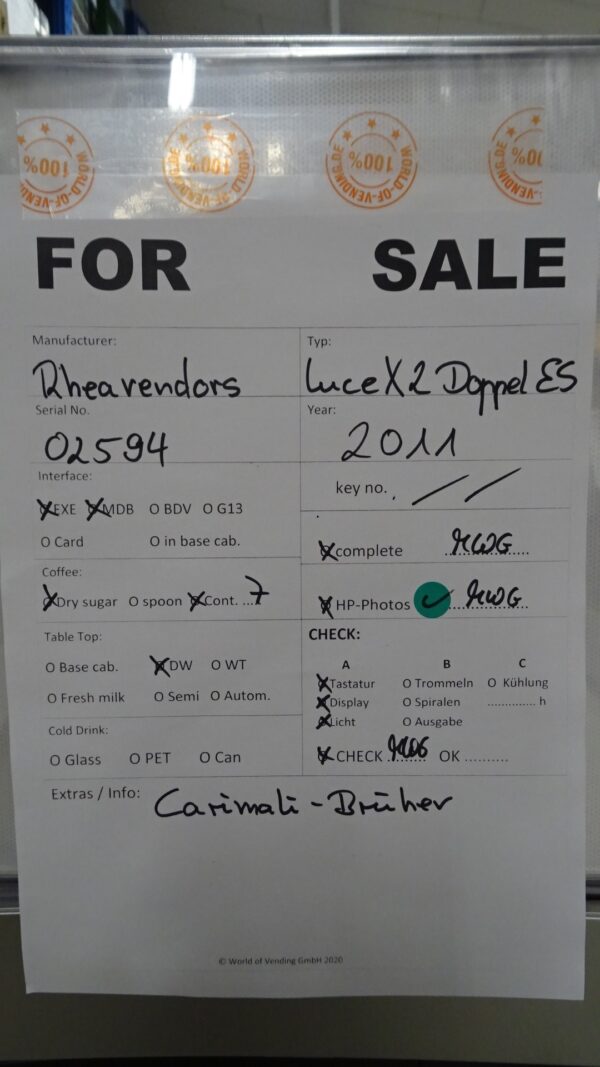 100% WORLD-OF-VENDING.DE
100% WORLD-OF-VENDING.DE
100% WORLD-OF-VENDING.DE
FOR SALE
Manufacturer: Typ:
Rheavendors Luce X2 Doppel ES
Serial No. Year:
02594 2011
Interface: key no. . / /
EXE MDB O BDV O G13
O Card O in base cab.
complete
HP-Photos
Coffee:
Dry sugar O spoon Cont. ...7
Table Top:
O Base cab. DW O WT
O Fresh milk O Semi O Autom.
Cold Drink:
O Glass O PET O Can
CHECK:
A B C
Tastatur O Trommeln O Kühlung
Display O Spiralen .............. h
Licht O Ausgabe
CHECK OK ..........
Extras / Info: Carimali-Brüher
© World of Vending GmbH 2020